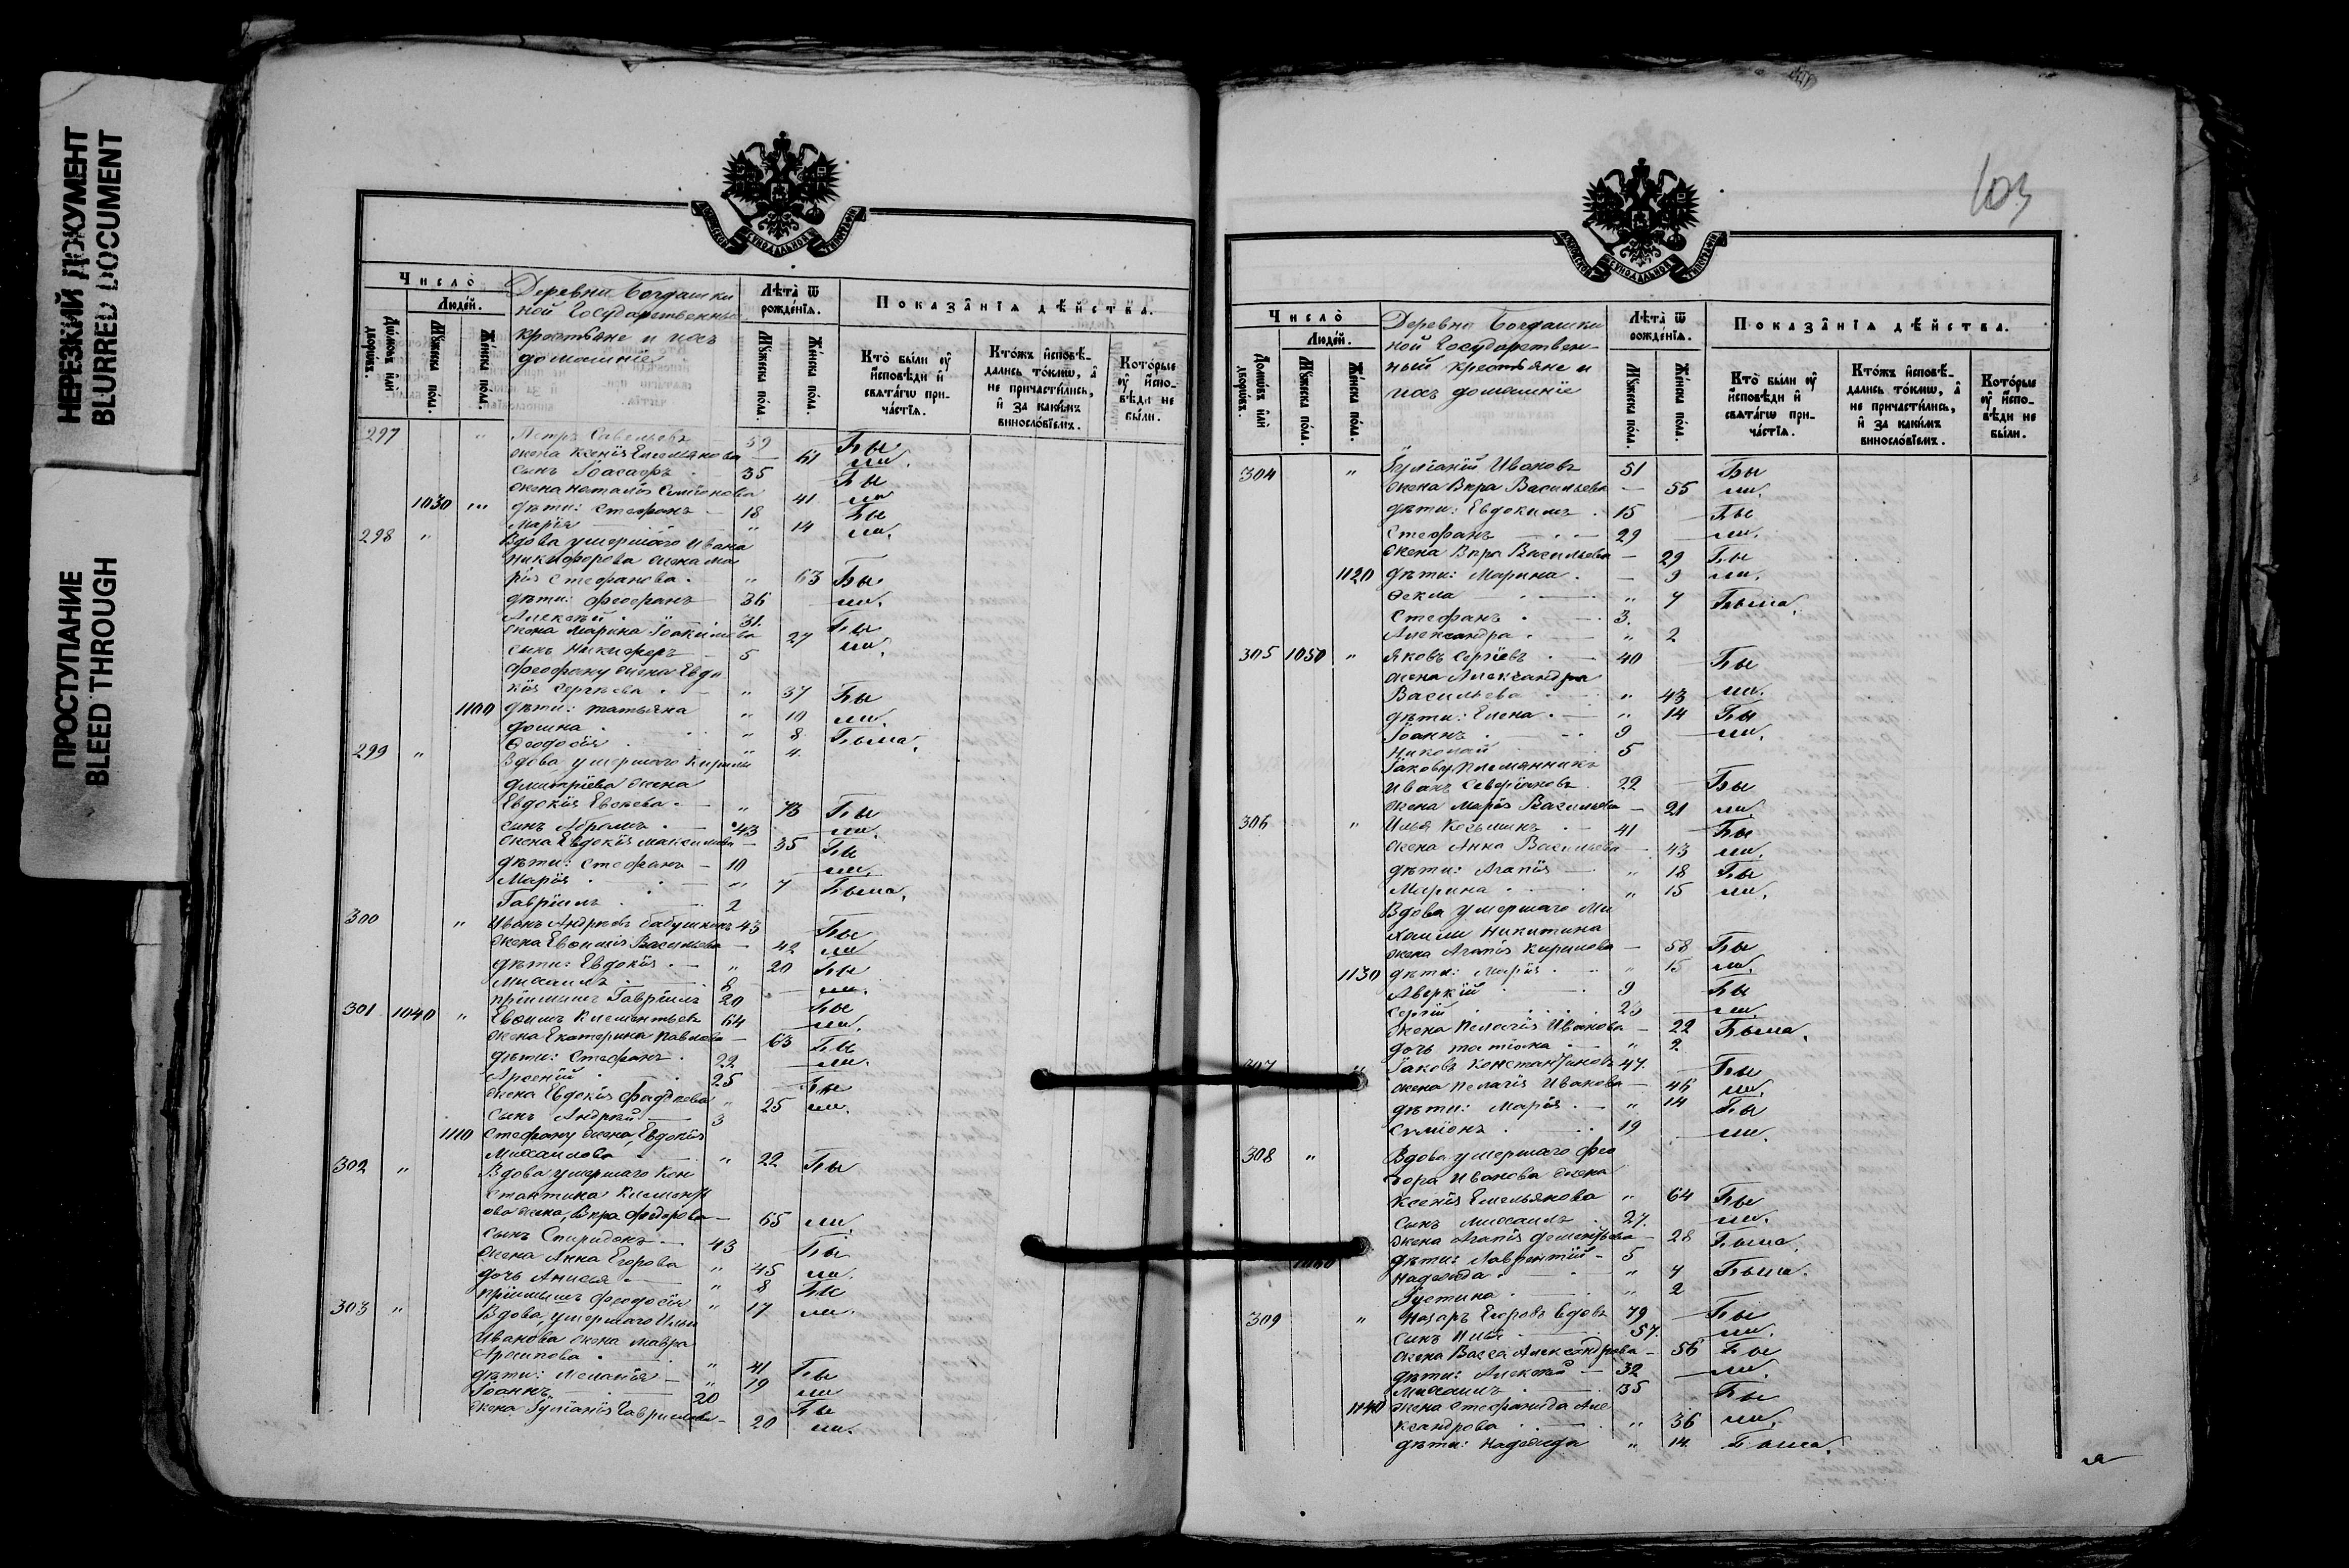 НЕРЕЗКИЙ ДОКУМЕНТ
BLURRED DOCUMENT
ПРОСТУПАНИЕ
BLEED THROUGH
МОСКОВСКОЙ СУНОДАЛЬНОЙ ТИПОГРАФІИ
Число̀
Людéй.
Домѡвъ и҆лѝ дворѡвъ.
Мꙋ́жеска пóла.
Же́нска пóла.
Деревни Богдашки
ной Государственные
крестьяне и ихъ
домашніе
Лѣта̀ ѿ рожде́нїѧ.
Мꙋ́жеска пóла.
Же́нска пóла.
Показа̂нїѧ дѣ́йства.
Кто̀ бы́ли ᲂу҆ и҆спове́ди и҆ свѧта́гѡ прича́стїѧ.
Кто́жъ и҆сповѣ́дались то́кмѡ, а҆ не причасти́лись, и҆ за каки́мъ винослóвїемъ.
Кото́рые ᲂу҆ и҆сповѣ́ди не бы́ли.
297 " Петръ Савельевъ 59 Бы
жена Ксенія Емельянова — 61 ли.
сынъ Іоасафъ 35 Бы
жена Наталія Симіонова 41 ли
1030 дѣти: Стефанъ — 18 Бы
Марія " 14 ли.
298 " Вдова умершаго Ивана
Никифорова жена Ма
рія Стефанова. " 63 Бы
дѣти: Феофанъ 36 ли.
Алексѣй 31. Бы
жена Марина Іоакимова 27 ли.
сынъ Никифоръ — 5
Феофану жена Евдо
кія Сергѣева " 37 Бы
1100 дѣти: Татьяна " 10 ли.
" 8 Была.
Ѳеодосія " 4.
299 " Вдова умершаго Кирилы
Димитріева жена
Евдокія " 73 Бы
сынъ Абрамъ 43 ли.
жена Евдокія Максимова — 35 Бы
дѣти: Стефанъ — 10 ли.
Марія " 7 Была.
Гавріилъ 2
300 " Иванъ Андреевъ Бабушкинъ 43 Бы
жена Евфимія Васильева — 42 ли
дѣти: Евдокія. — " 20 Бы
Михаилъ 8 ли.
пріимышъ Гавріилъ 20 Бы
301 1040 " Евфимъ Климентьевъ 64 ли.
жена Екатерина Павлова — 63 Бы
дѣти: Стефанъ 22 ли.
Арсеній 25 Бы
жена Евдокія Фаддеева " 25 ли.
сынъ Андрей — 3
1110 Стефану жена Евдокія
Михайлова " 22 Бы
302 " Вдова умершаго Кон
стантина Климентъ
ева жена, Вѣра Федорова — 65 ли.
сынъ Спиридонъ 43 Бы
жена Анна Егорова " 45 ли.
дочь Анисія " 8 Бы
пріимышъ Феодосія " 17 ли.
303 " Вдова, умершаго Ильи
Иванова жена Мавра
Архипова " 41 Бы
дѣти: Меланія — " 19 ли
Іоаннъ 20 Бы
жена Іуліанія Гаврилова — 20 ли.
103
МОСКОВСКОЙ СУНОДАЛЬНОЙ ТИПОГРАФІИ
Число̀
Людéй.
Домѡвъ и҆лѝ дворѡвъ.
Мꙋ́жеска пóла.
Же́нска пóла.
Деревни Богдашки
ной Государствен-
ный крестьяне и
ихъ домашніе
Лѣта̀ ѿ рожде́нїѧ.
Мꙋ́жеска пóла.
Же́нска пóла.
Показа̂нїѧ дѣ́йства.
Кто̀ бы́ли ᲂу҆ и҆спове́ди и҆ свѧта́гѡ прича́стїѧ.
Кто́жъ и҆сповѣ́дались то́кмѡ, а҆ не причасти́лись, и҆ за каки́мъ винослóвїемъ.
Кото́рые ᲂу҆ и҆сповѣ́ди не бы́ли.
304 " Іуліаній Ивановъ 51 Бы
жена Вѣра Васильева — 55 ли.
дѣти: Евдокимъ 15 Бы
Стефанъ 29 ли.
жена Вѣра Васильева — 29 Бы
1120 дѣти: Марина. — 9 ли.
Ѳекла " 7 Была.
Стефанъ 3.
Александра " 2
305 1050 " Яковъ Сергіевъ 40 Бы
жена Александра
Васильева " 43 ли.
дѣти: Елена " 14 Бы
Іоаннъ 9 ли.
Николай 5
Іакову племянникъ
Иванъ Северіановъ 22 Бы
жена Марія Васильева — 21 ли
306 " Илья Козьминъ 41 Бы
жена Анна Васильева — 43 ли.
дѣти: Агапія — " 18 Бы
Марина " 15 ли.
Вдова умершаго Ми
хаила Никитина
жена Агапія Кирилова — 58 Бы
1130 дѣти: Марія " 15 ли.
Аверкій 9 Бы
Сергій 23 ли.
жена Пелагія Иванова — 22 Была.
дочь Татіана " 2
307 " Іаковъ Константиновъ 47. Бы
жена Пелагія Иванова — 46 ли.
дѣти: Марія — " 14 Бы
Симіонъ 19 ли.
308 " Вдова умершаго Фео
дора Иванова жена
Ксенія Емельянова " 64 Бы
сынъ Михаилъ 27. ли.
жена Агапія Дементьева — 28 Была.
1060 дѣти: Лаврентій — 5
Надежда " 7 Была.
Іустина " 2
309 " Назаръ Егоровъ вдовъ 79 Бы
сынъ Илья 57. ли.
жена Васса Александрова — 56 Бы
дѣти: Алексѣй — 32 ли.
Михаилъ 35 Бы
1140 жена Стефанида Але
ксандрова " 36 ли.
дѣти: Надежда " 14 Была.